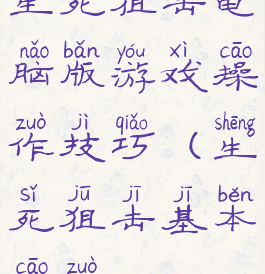 生死狙击电
nǎo bǎn yóu xì cāo
脑版游戏操
zuò jì qiǎo shēng
作技巧（生
sǐ jū jī jī běn
死狙击基本
cāo zuò